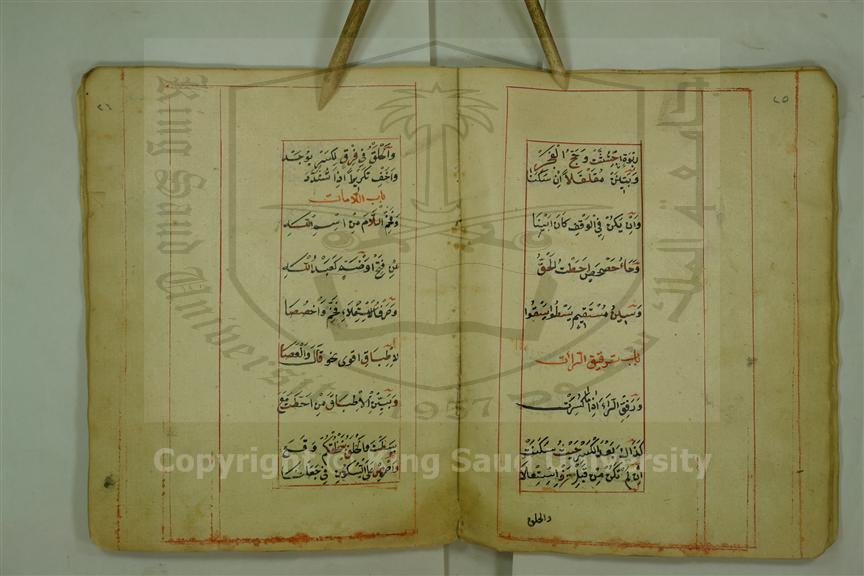 ٢٥
ربوة اجتثت وحج الفجر
وبينن مقلقلا ان سكنا
وان يكن في الوقف كان ابينا
وحاء حصحص احطت الحق
وسين مستقيم يسطو يسقوا
باب ترقيق الراات
ورقق الراء اذا ما كسرت
كذاك بعد الكسر حيث سكنت
ان لم تكن من قبل حرف استعلا
والخلف
٢٦
والخلف في فرق لكسر يوجد
واخف تكريرا اذا تشدد
باب اللامات
وفخم اللام من اسم الله
عن فتح او ضم كعبد الله
وحرف الاستعلاء فخم واخصصا
لاطباق اقوى نحو قال والعصا
وبين الاطباق من احطت مع
بسطت والخلف بنخلقكم وقع
واحرص على السكون في جعلنا
King Saud University
1957
Copyright © King Saud University